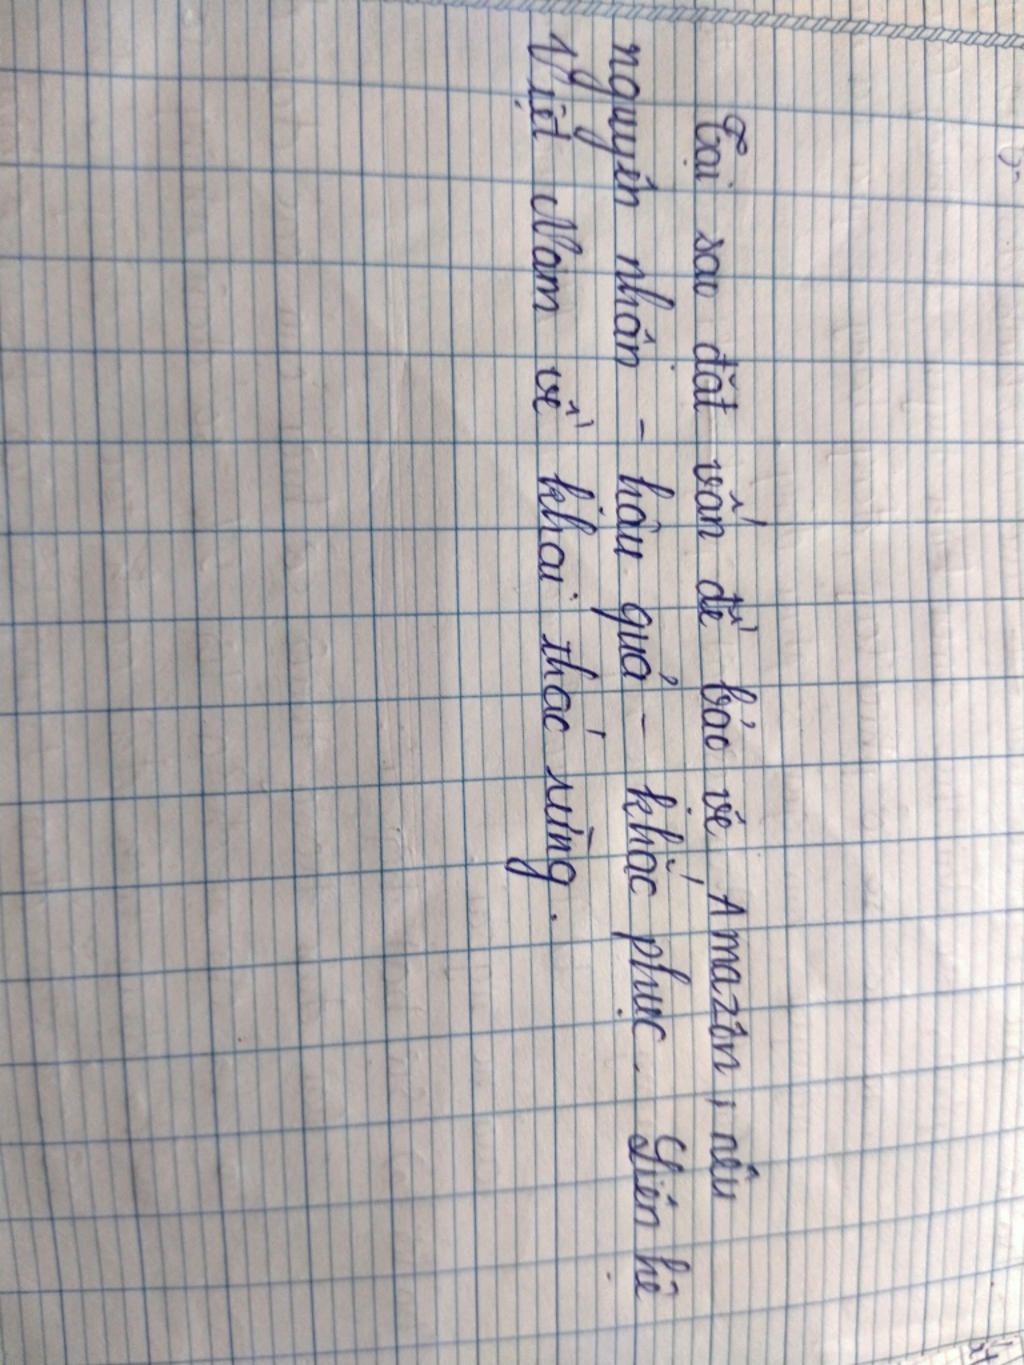 Tại sao đặt vấn đề bảo vệ Amazôn, nêu
nguyên nhân - hậu quả - khắc phục. Liên hệ
Việt Nam về khai thác rừng.